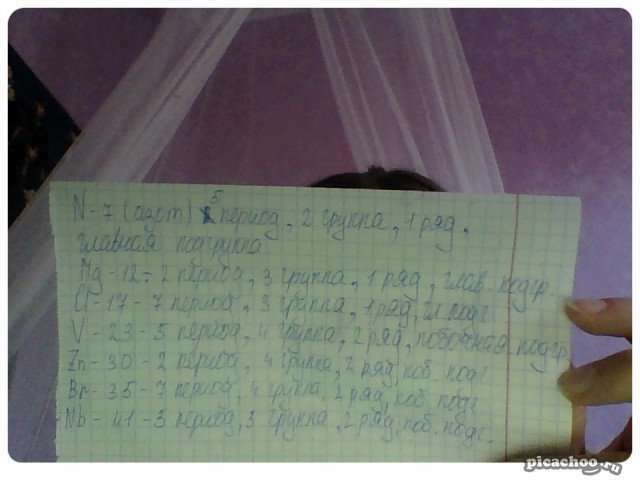 N-7 (азот) 5 период, 2 группа, 1 ряд,
главная подгруппа
Mg-12- 2 период, 3 группа, 1 ряд, глав. подгр.
Cl-17-7 период, 3 группа, 1 ряд, гл. подг.
V-23-5 период, 4 группа, 2 ряд, побочная подгр.
Zn-30-2 период, 4 группа, 2 ряд, поб. подг.
Br-35-7 период, 4 группа, 2 ряд, поб. подг.
Nb-41-5 период, 3 группа, 2 ряд, поб. подг.
picachoo.ru